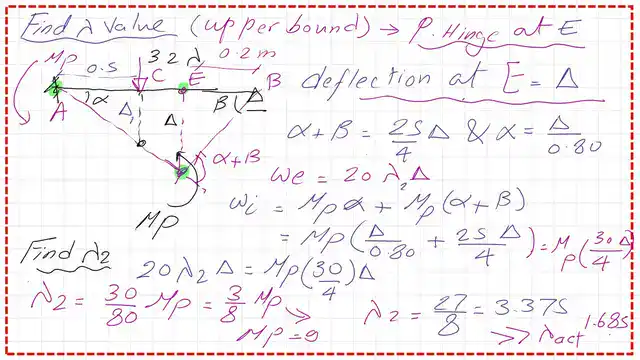 Find λ value (upper bound) → P. Hinge at E
Mp 0.5 32λ 0.2 m
C E B
A α Δ1 Δ β
deflection at E = Δ
α+β = 25/4 Δ & α = Δ/0.80
α+β
we = 20 λ2 Δ
Mp
wi = Mp α + Mp (α + β)
= Mp (Δ/0.80 + 25Δ/4) = Mp (30Δ/4)
Find λ2
20 λ2 Δ = Mp (30/4) Δ
λ2 = 30/80 Mp = 3/8 Mp
Mp = 9
λ2 = 27/8 = 3.375
>> λact 1.685